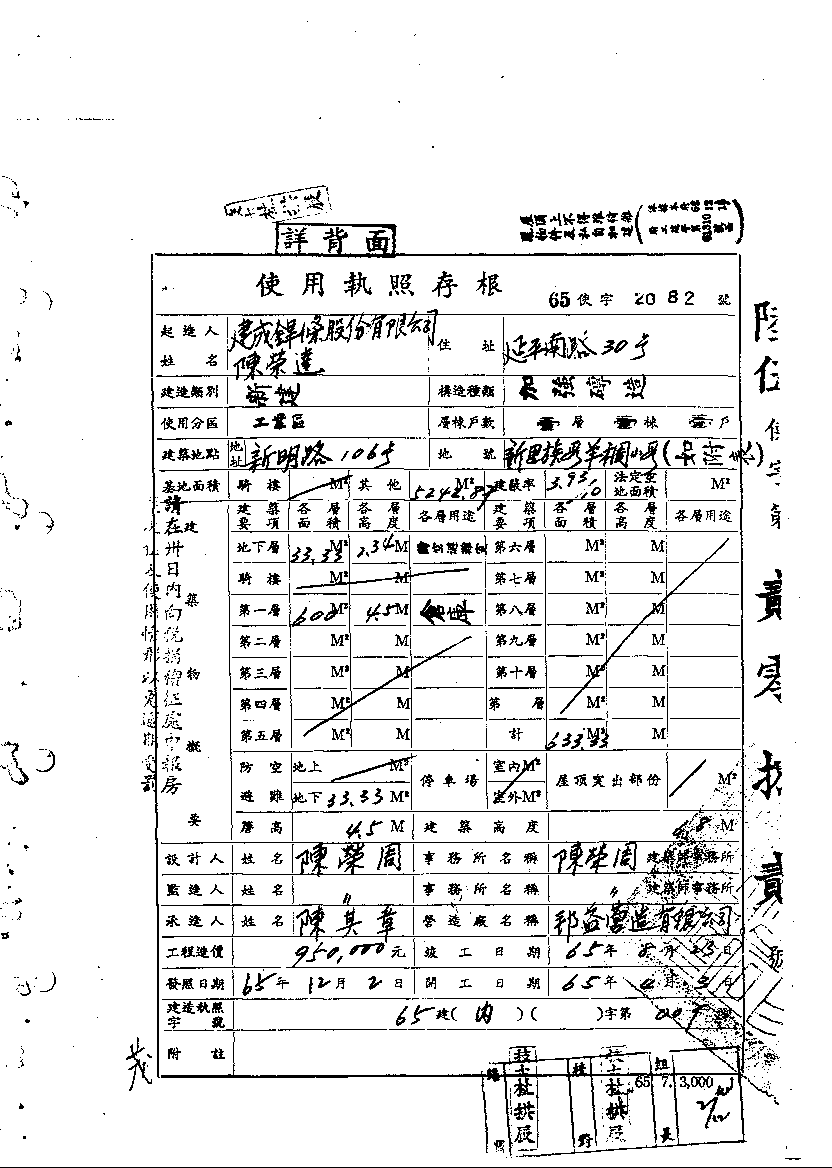 屋頂上不得
詳背面
使用執照存根
65使字 2082 號
起造人 姓名 建成銲條股份有限公司 陳榮達 住址 延平南路30號
建造類別 新建 構造種類 加強磚造
使用分區 工業區 層棟戶數 壹層 壹棟 壹戶
建築地點 地址 新明路106號 地號
基地面積 騎樓 M² 其他 5242.87 M² 建蔽率 法定空地面積 M²
建築要項 各層面積 各層高度 各層用途 建築要項 各層面積 各層高度 各層用途
地下層 33.33 M² 2.34 M 第六層 M² M
騎樓 M² 第七層 M² M
第一層 600 M² 4.5 M 倉庫 第八層 M² M
第二層 M² M 第九層 M² M
第三層 M² M 第十層 M² M
第四層 M² M 第 層 M² M
第五層 M² M 計 633.33 M² M
建築物概要
防空避難 地上 M² 地下 33.33 M² 停車場 室內M² 室外M² 屋頂突出部份 M²
簷高 4.5 M 建築高度 8 M
設計人 姓名 陳榮周 事務所名稱 陳榮周 建築師事務所
監造人 姓名 〃 事務所名稱 〃 建築師事務所
承造人 姓名 陳其章 營造廠名稱 邦益營造有限公司
工程造價 950,000元 竣工日期 65年 8月 23日
發照日期 65年 12月 2日 開工日期 65年 4月 3日
建造執照字號 65建(內)( )字第 號
附註
請在卅日內向稅捐稽征處申報房
陸伍使字第貳零捌貳號
茂
技士杜拱辰
技士杜拱辰
組長
65. 7. 3,000